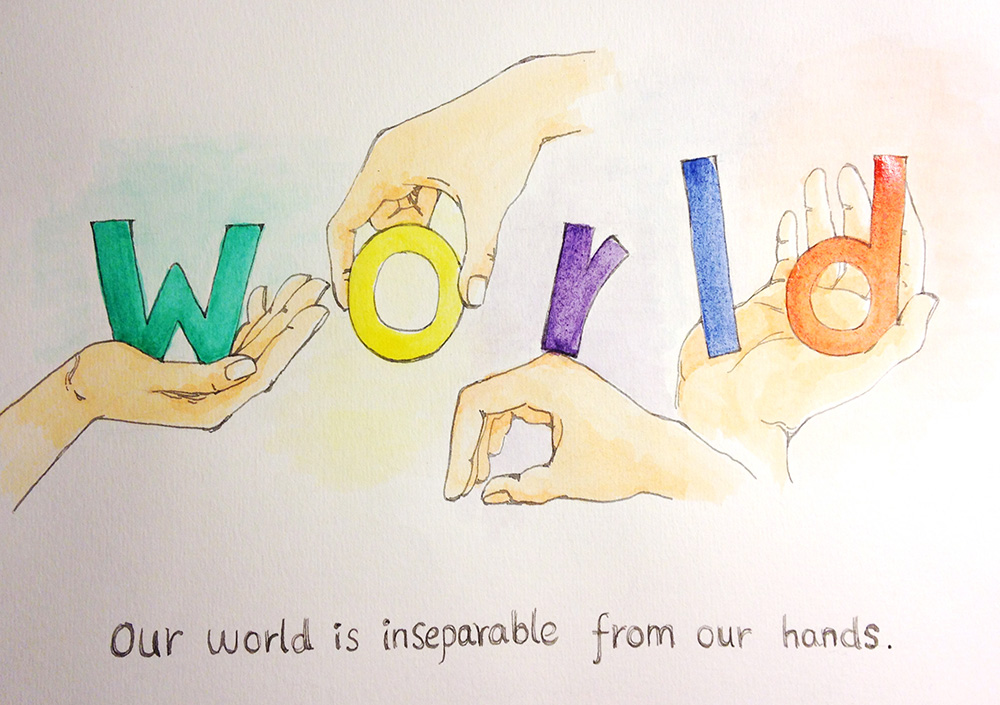 world
Our world is inseparable from our hands.